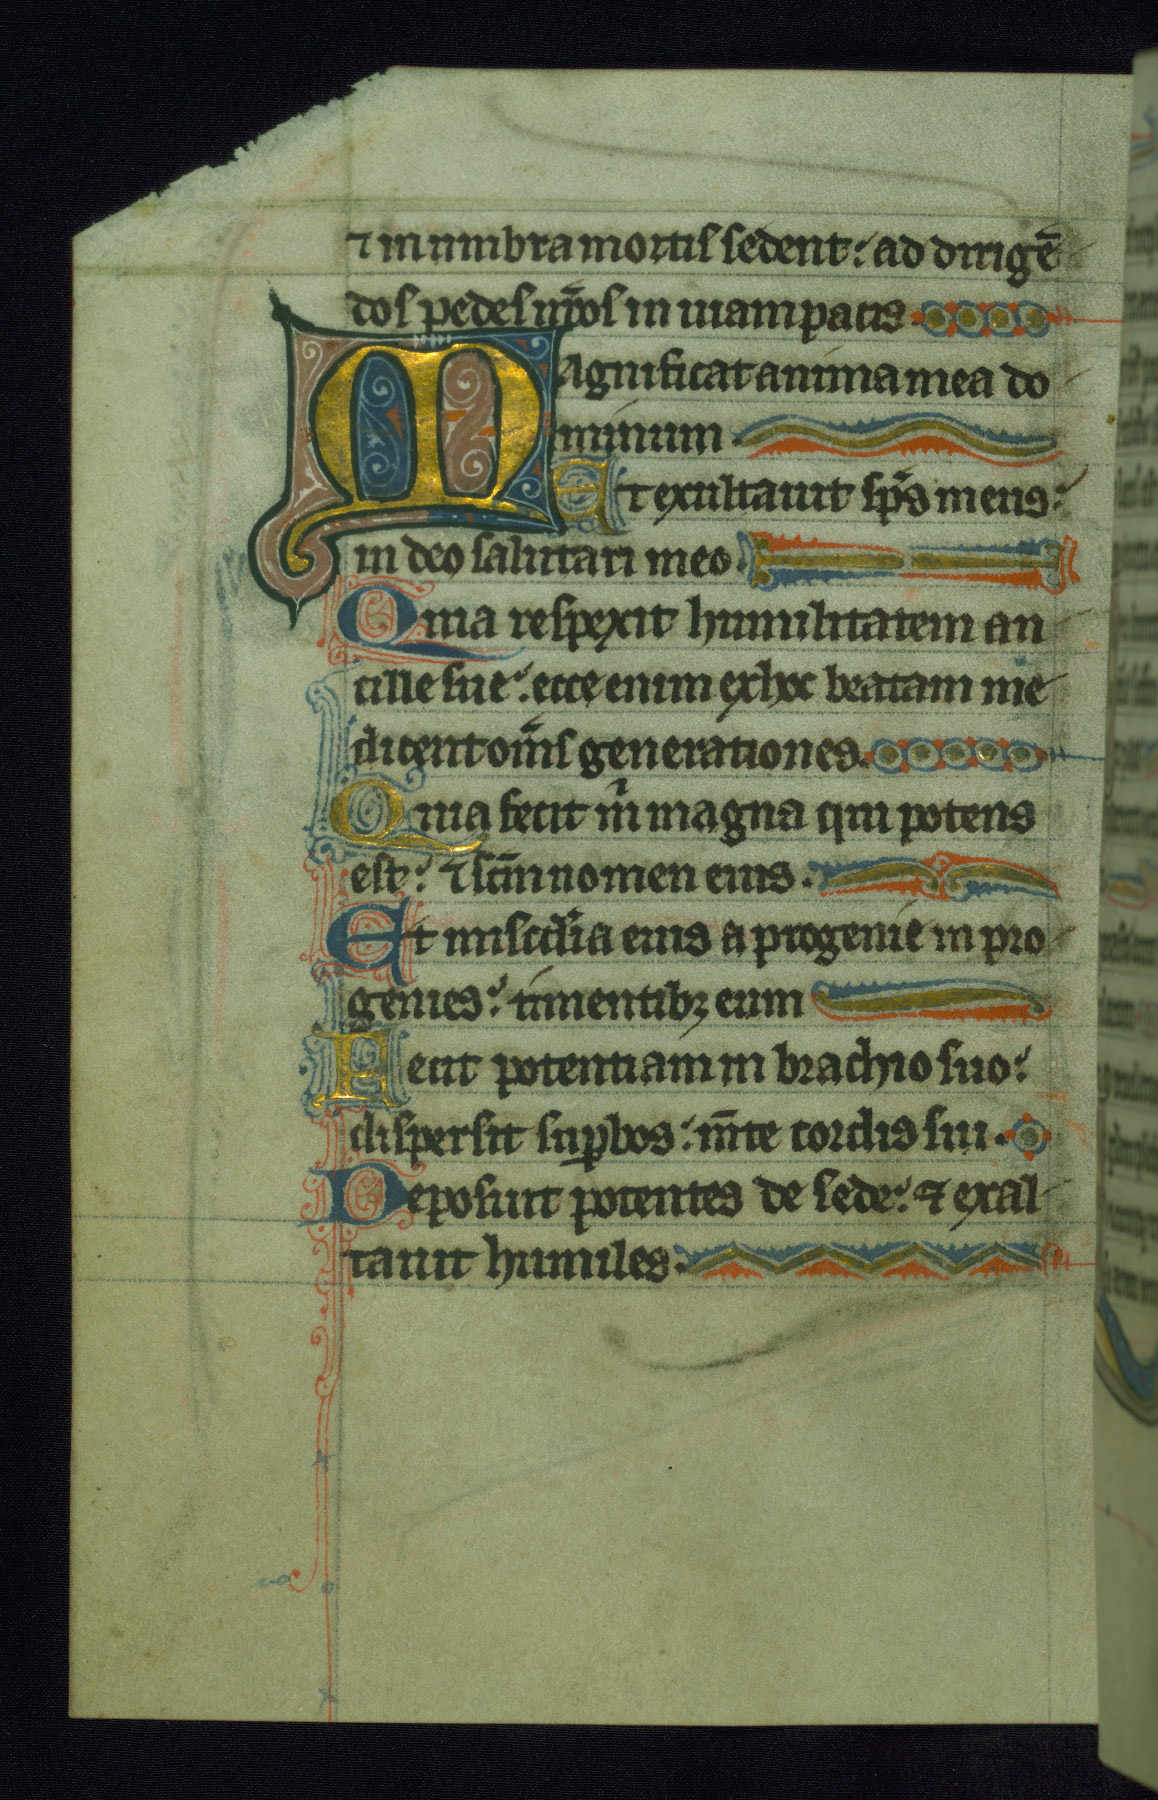 ⁊ in umbra mortis sedent: ad dirigē
dos pedes nr̄os in uiam pacis
Magnificat anima mea do
minum
Et exultauit sp̄s meus:
in deo salutari meo
Quia respexit humilitatem an
cille sue: ecce enim ex hoc beatam me
dicent om̄s generationes
Quia fecit m̄ magna qui potens
est: ⁊ sc̄m nomen eius.
Et miscd̄ia eius a progenie in pro
genies: timentibꝫ eum
Fecit potentiam in brachio suo:
dispersit suꝑbos: m̄te cordis sui.
Deposuit potentes de sede: ⁊ exal
tauit humiles.